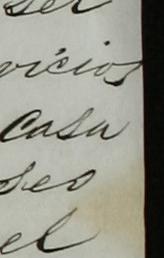 ser
vicios
casa
seo
el